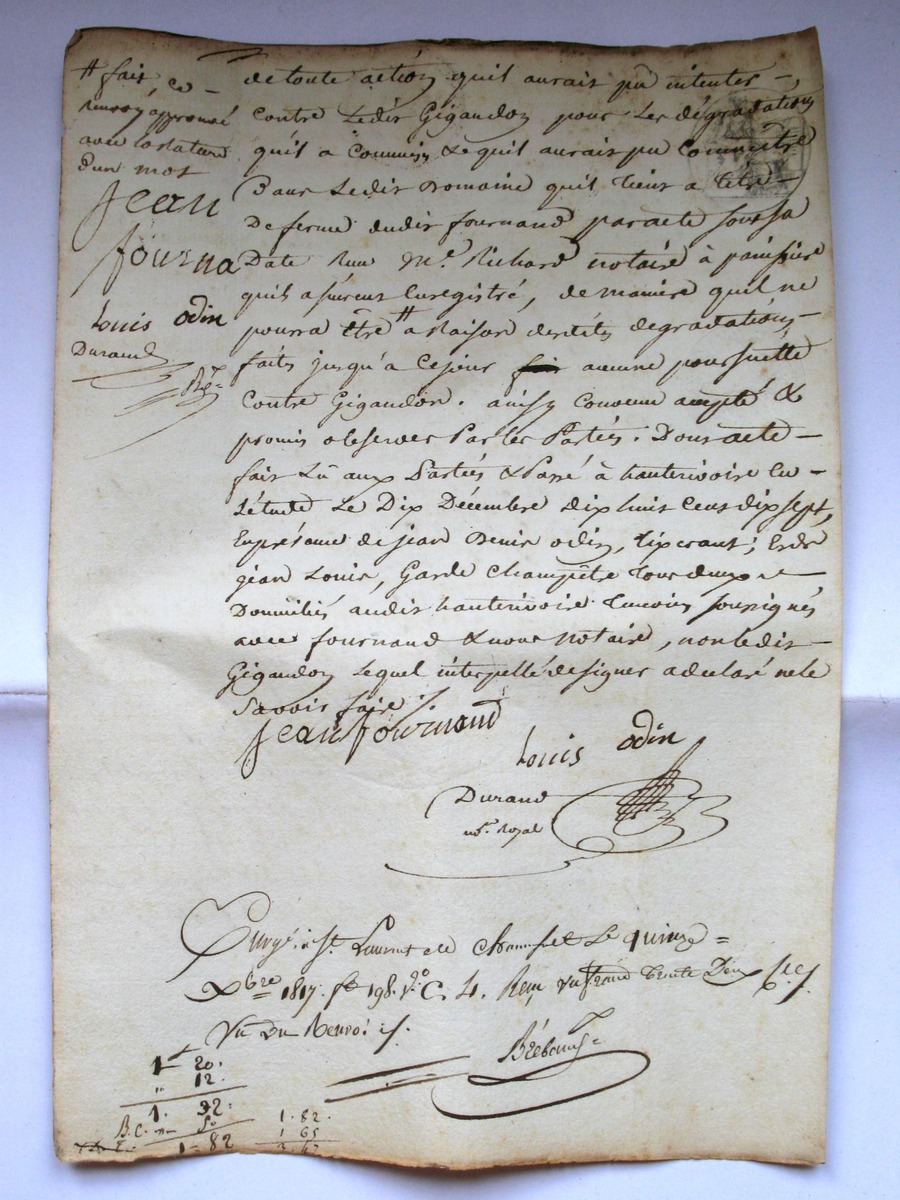 # fait ce
renvoy approuvé
avec la rature
d'un mot
Jean
fourna
Louis odin
Durand
Rl
de toute action quil aurait pu intenter
contre ledit Gigaudon pour les dégradations
quil a commis & quil aurait pu commettre
dans ledit Domaine quil tient a titre
de ferme dudit fournand par acte sous sa
Date Reçu Me. Richard notaire à panissiere
quil assureur Enregistré, de maniere quil ne
pourra être # a Raison desdites degradations
faits jusqu'a ce jour aucune poursuitte
contre Gigaudon. ainsy convenu accepté &
promis observer Par les Parties. Dont acte
fait Lû aux Parties & Passé à hauterivoire En
Létude Le Dix Décembre Dix huit Cent dix sept,
En présence de jean Denis odin, tixerant, &
jean Louis, Garde Champêtre tous deux
Domiciliés audit hauterivoire Temoins soussignés
avec fournand & nous notaire, non ledit
Gigaudon Lequel interpellé de signer a declaré ne le
savoir faire ./.
Jean fournand
Louis odin
Durand
not. Royal
Enrgé. à St. Laurent de Chamousset Le quinze =
Xbre 1817. fo 198. vo. C. 4. Reçu un franc trente Deux
Un du Renvoi ./.
1 20.
" 12.
1. 32.
B.C. 50
1 - 82
1. 82.
1 65
3 47